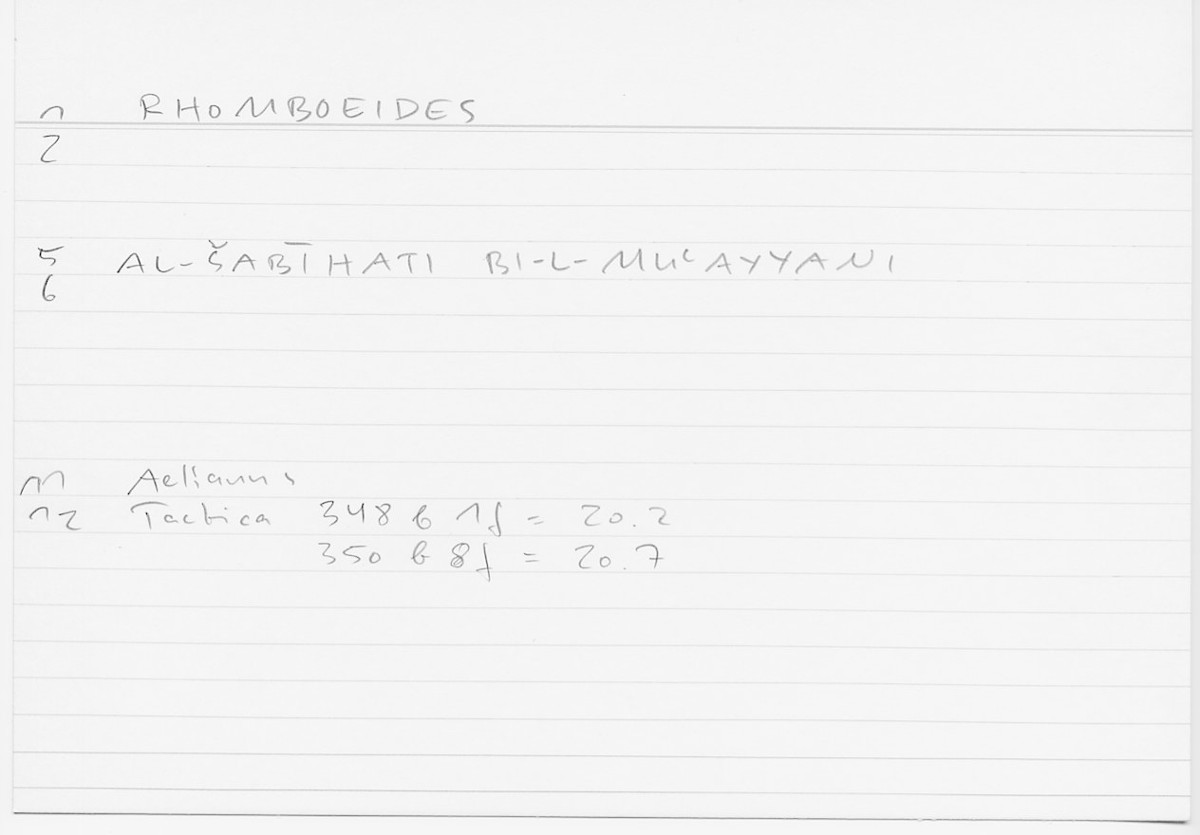 1 RHOMBOEIDES
2
5 AL-ŠABĪHATI BI-L-MUʿAYYANI
6
11 Aelianus
12 Tactica 348 b 1f = 20.2
350 b 8f = 20.7